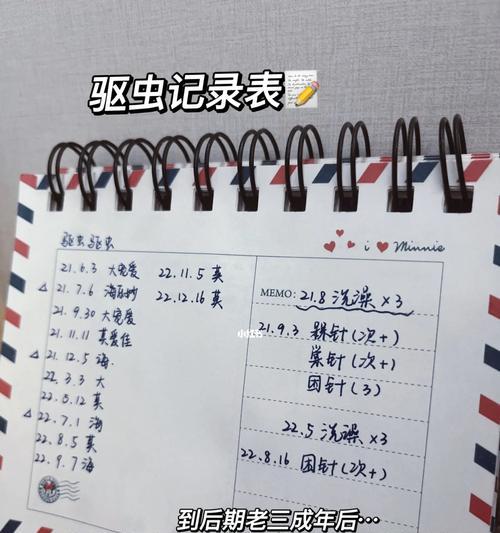 驱虫记录表📝
驱虫驱虫
21.6.3 大宠爱
△ 21.7.6 海乐妙
21.9.30 大宠爱
21.11.11 莫爱佳
△ 21.12.5 海.
22.3.3 大
22.5.12 莫
△ 22.7.1 海
22.8.5 莫
22.9.7 海
22.11.5 莫
22.12.16 莫
i ♥ Minnie
MEMO: 21.8 洗澡 ×3
21.9.3
针(次+)
针(3)
22.5 洗澡 ×3
22.8.16 针(次+)
小红书
到后期老三成年后…